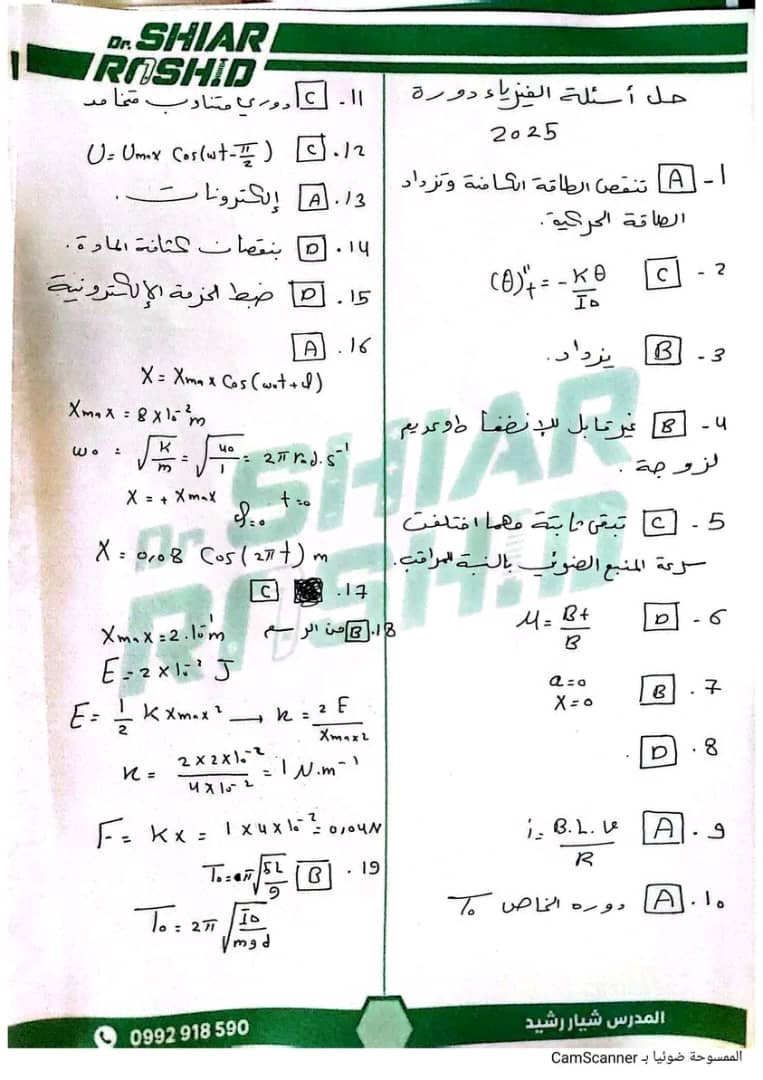 Dr. SHIAR
RASHID
حل أسئلة الفيزياء دورة
2025
1- A تنقص الطاقة الكامنة وتزداد
الطاقة الحركية.
2- C (θ)''t = - Kθ / I∆
3- B يزداد.
4- B غير قابل للإنضغاط وعديم
لزوجة.
5- C تبقى ثابتة مهما اختلفت
سرعة المنبع الضوئي بالنسبة للمراقب.
6- D M = Bt / B
7. B a=0
x=0
8. D
9. A i = B.L.v / R
10. A دوره الخاص T₀
11. C دوري متناوب متخامد
12. C U = Umax Cos(wt - π/2)
13. A إلكترونات.
14. D بنقصان كثافة المادة.
15. D ضبط الحزمة الإلكترونية
16. A
X = Xmax Cos(w₀t + φ)
Xmax = 8 x 10⁻² m
w₀ = √(K/m) = √(40/1) = 2π rad.s⁻¹
X = + Xmax t=0
φ=0
X = 0,08 Cos(2πt) m
17. C
18. B من الرسم Xmax = 2.10⁻¹ m
E = 2 x 10⁻² J
E = 1/2 K Xmax² → K = 2E / Xmax²
K = 2x2x10⁻² / 4x10⁻² = 1 N.m⁻¹
F = Kx = 1 x 4 x 10⁻² = 0,04N
19. B T₀ = π √(5L/g)
T₀ = 2π √(I∆ / mgd)
Dr. SHIAR
RASHID
0992 918 590
المدرس شيار رشيد
الممسوحة ضوئيا بـ CamScanner